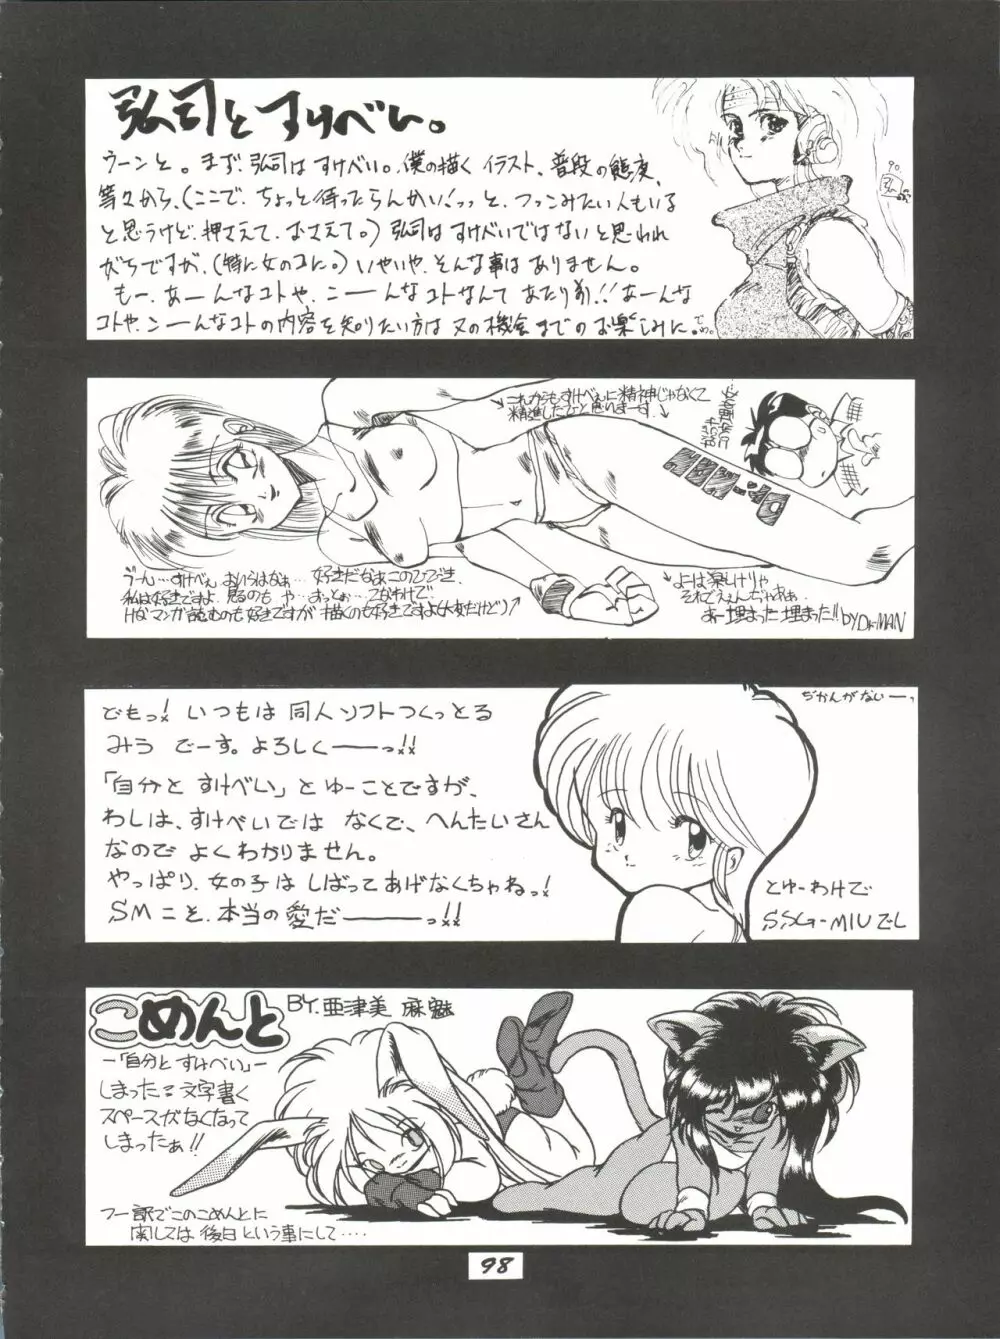 弘司とすけべい。
ウーンと。まず、弘司はすけべい。僕の描くイラスト、普段の態度、
等々から、(ここで、ちょっと待ったらんかい!っっと、つっこみたい人もいる
と思うけど、押さえて、おさえて。)弘司はすけべいではないと思われ
がちですが、(特に女のコに。)いやいや、そんな事はありません。
もー、あーんなコトや、こーーんなコトなんてあたり前!!あーんな
コトや、こーーんなコトの内容を知りたい方は又の機会までのお楽しみに。では。
90.
これからもすけべぇに精神じゃなくて
精進したいと思いまーす。
うーん…すけべぇ おいらはなぁ… 好きだなぁこのひびき、
私は好きですよ 見るのも や…おっとぉ…てなわけで
Hなマンガ読むのも好きですが 描くのも好きですよ(大変だけど)
よは楽しけりゃ
それでええんぢゃああ、
あー埋まった埋まった!! byDr-MAN
ぢかんがないーっ
どもっ!いつもは同人ソフトつくっとる
みうでーす。よろしくーーーっ!!
「自分とすけべい」とゆーことですが、
わしは、すけべいではなくて、へんたいさん
なのでよくわかりません。
やっぱり、女の子はしばってあげなくちゃねっ!
SMこそ、本当の愛だーーーっ!!
とゆーわけで
SSG-MIUでし
こめんと BY.亜津美 麻魅
ー「自分とすけべい」ー
しまった 文字書く
スペースがなくなって
しまったぁ!!
つー訳でこのこめんとに
関しては後日という事にして‥‥
98